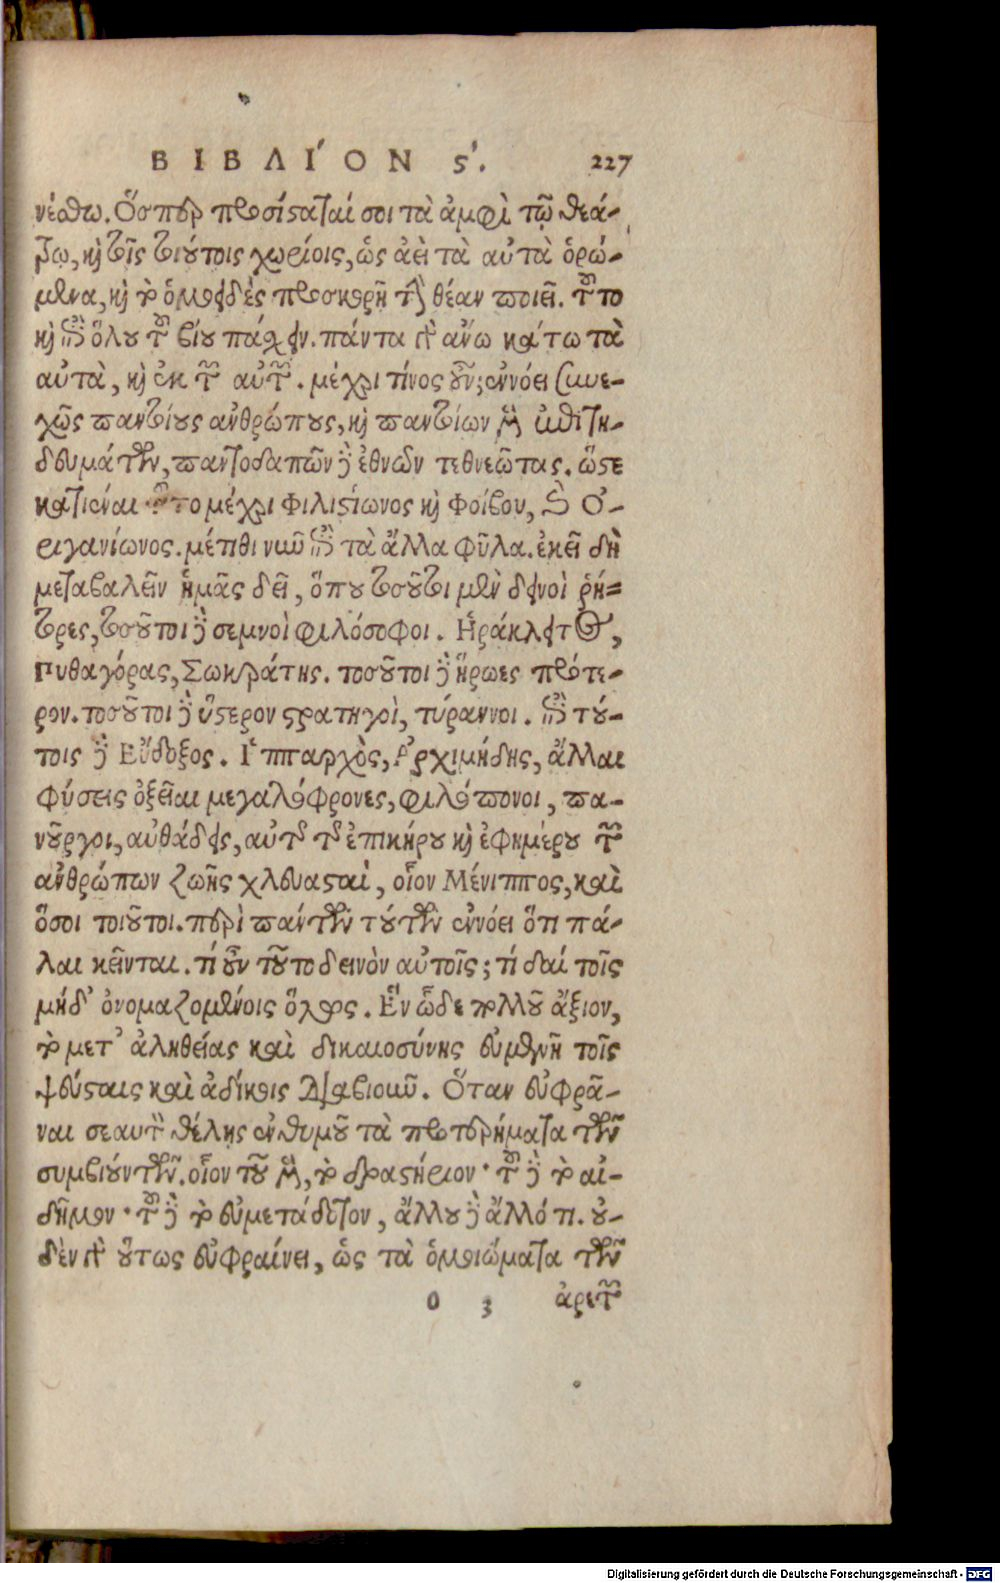 ΒΙΒΛΊΟΝ ϛʹ. 227
νέσθω. Ὅσπερ προσίσταταί σοι τὰ ἀμφὶ τῷ θεά-
τρῳ, καὶ τοῖς τοιούτοις χωρίοις, ὡς ἀεὶ τὰ αὐτὰ ὁρώ-
μενα, καὶ τὸ ὁμοειδὲς προσκορῆ τὴν θέαν ποιεῖ. τοῦτο
καὶ ἐπὶ ὅλου τοῦ βίου πάσχειν. πάντα γὰρ ἄνω κάτω τὰ
αὐτὰ, καὶ ἐκ τῶν αὐτῶν. μέχρι τίνος οὖν; ἐννόει συνε-
χῶς παντοίους ἀνθρώπους, καὶ παντοίων μὲν ἐπιτη-
δευμάτων, παντοδαπῶν δὲ ἐθνῶν τεθνεῶτας. ὥστε
κατιέναι τοῦτο μέχρι Φιλιστίωνος καὶ Φοίβου, καὶ Ὀ-
ριγανίωνος. μέτιθι νῦν ἐπὶ τὰ ἄλλα φῦλα. ἐκεῖ δὴ
μεταβαλεῖν ἡμᾶς δεῖ, ὅπου τοσοῦτοι μὲν δεινοὶ ῥή-
τορες, τοσοῦτοι δὲ σεμνοὶ φιλόσοφοι. Ἡράκλειτος,
Πυθαγόρας, Σωκράτης. τοσοῦτοι δὲ ἥρωες πρότε-
ρον. τοσοῦτοι δὲ ὕστερον στρατηγοὶ, τύραννοι. ἐπὶ τού-
τοις δὲ Εὔδοξος. Ἵππαρχὸς, Ἀρχιμήδης, ἄλλαι
φύσεις ὀξεῖαι μεγαλόφρονες, φιλόπονοι, πα-
νοῦργοι, αὐθάδεις, αὐτῆς τῆς ἐπικήρου καὶ ἐφημέρου τῶν
ἀνθρώπων ζωῆς χλευασταί, οἷον Μένιππος, καὶ
ὅσοι τοιοῦτοι. περὶ πάντων τούτων ἐννόει ὅτι πά-
λαι κεῖνται. τί οὖν τοῦτο δεινὸν αὐτοῖς; τί δαί τοῖς
μήδ' ὀνομαζομένοις ὅλως. Ἓν ὧδε πολλοῦ ἄξιον,
τὸ μετ' ἀληθείας καὶ δικαιοσύνης εὐμενῆ τοῖς
ψεύσταις καὶ ἀδίκοις διαβιοῦν. Ὅταν εὐφρᾶ-
ναι σεαυτὸν θέλης ἐνθυμοῦ τὰ προτερήματα τῶν
συμβιούντων. οἷον τοῦ μὲν, τὸ δραστήριον· τοῦ δὲ τὸ αἰ-
δῆμον· τοῦ δὲ τὸ εὐμετάδοτον, ἄλλου δὲ ἄλλό τι. οὐ-
δὲν γὰρ οὕτως εὐφραίνει, ὡς τὰ ὁμοιώματα τῶν
o 3 ἀρετῶν
Digitalisierung gefördert durch die Deutsche Forschungsgemeinschaft - DFG